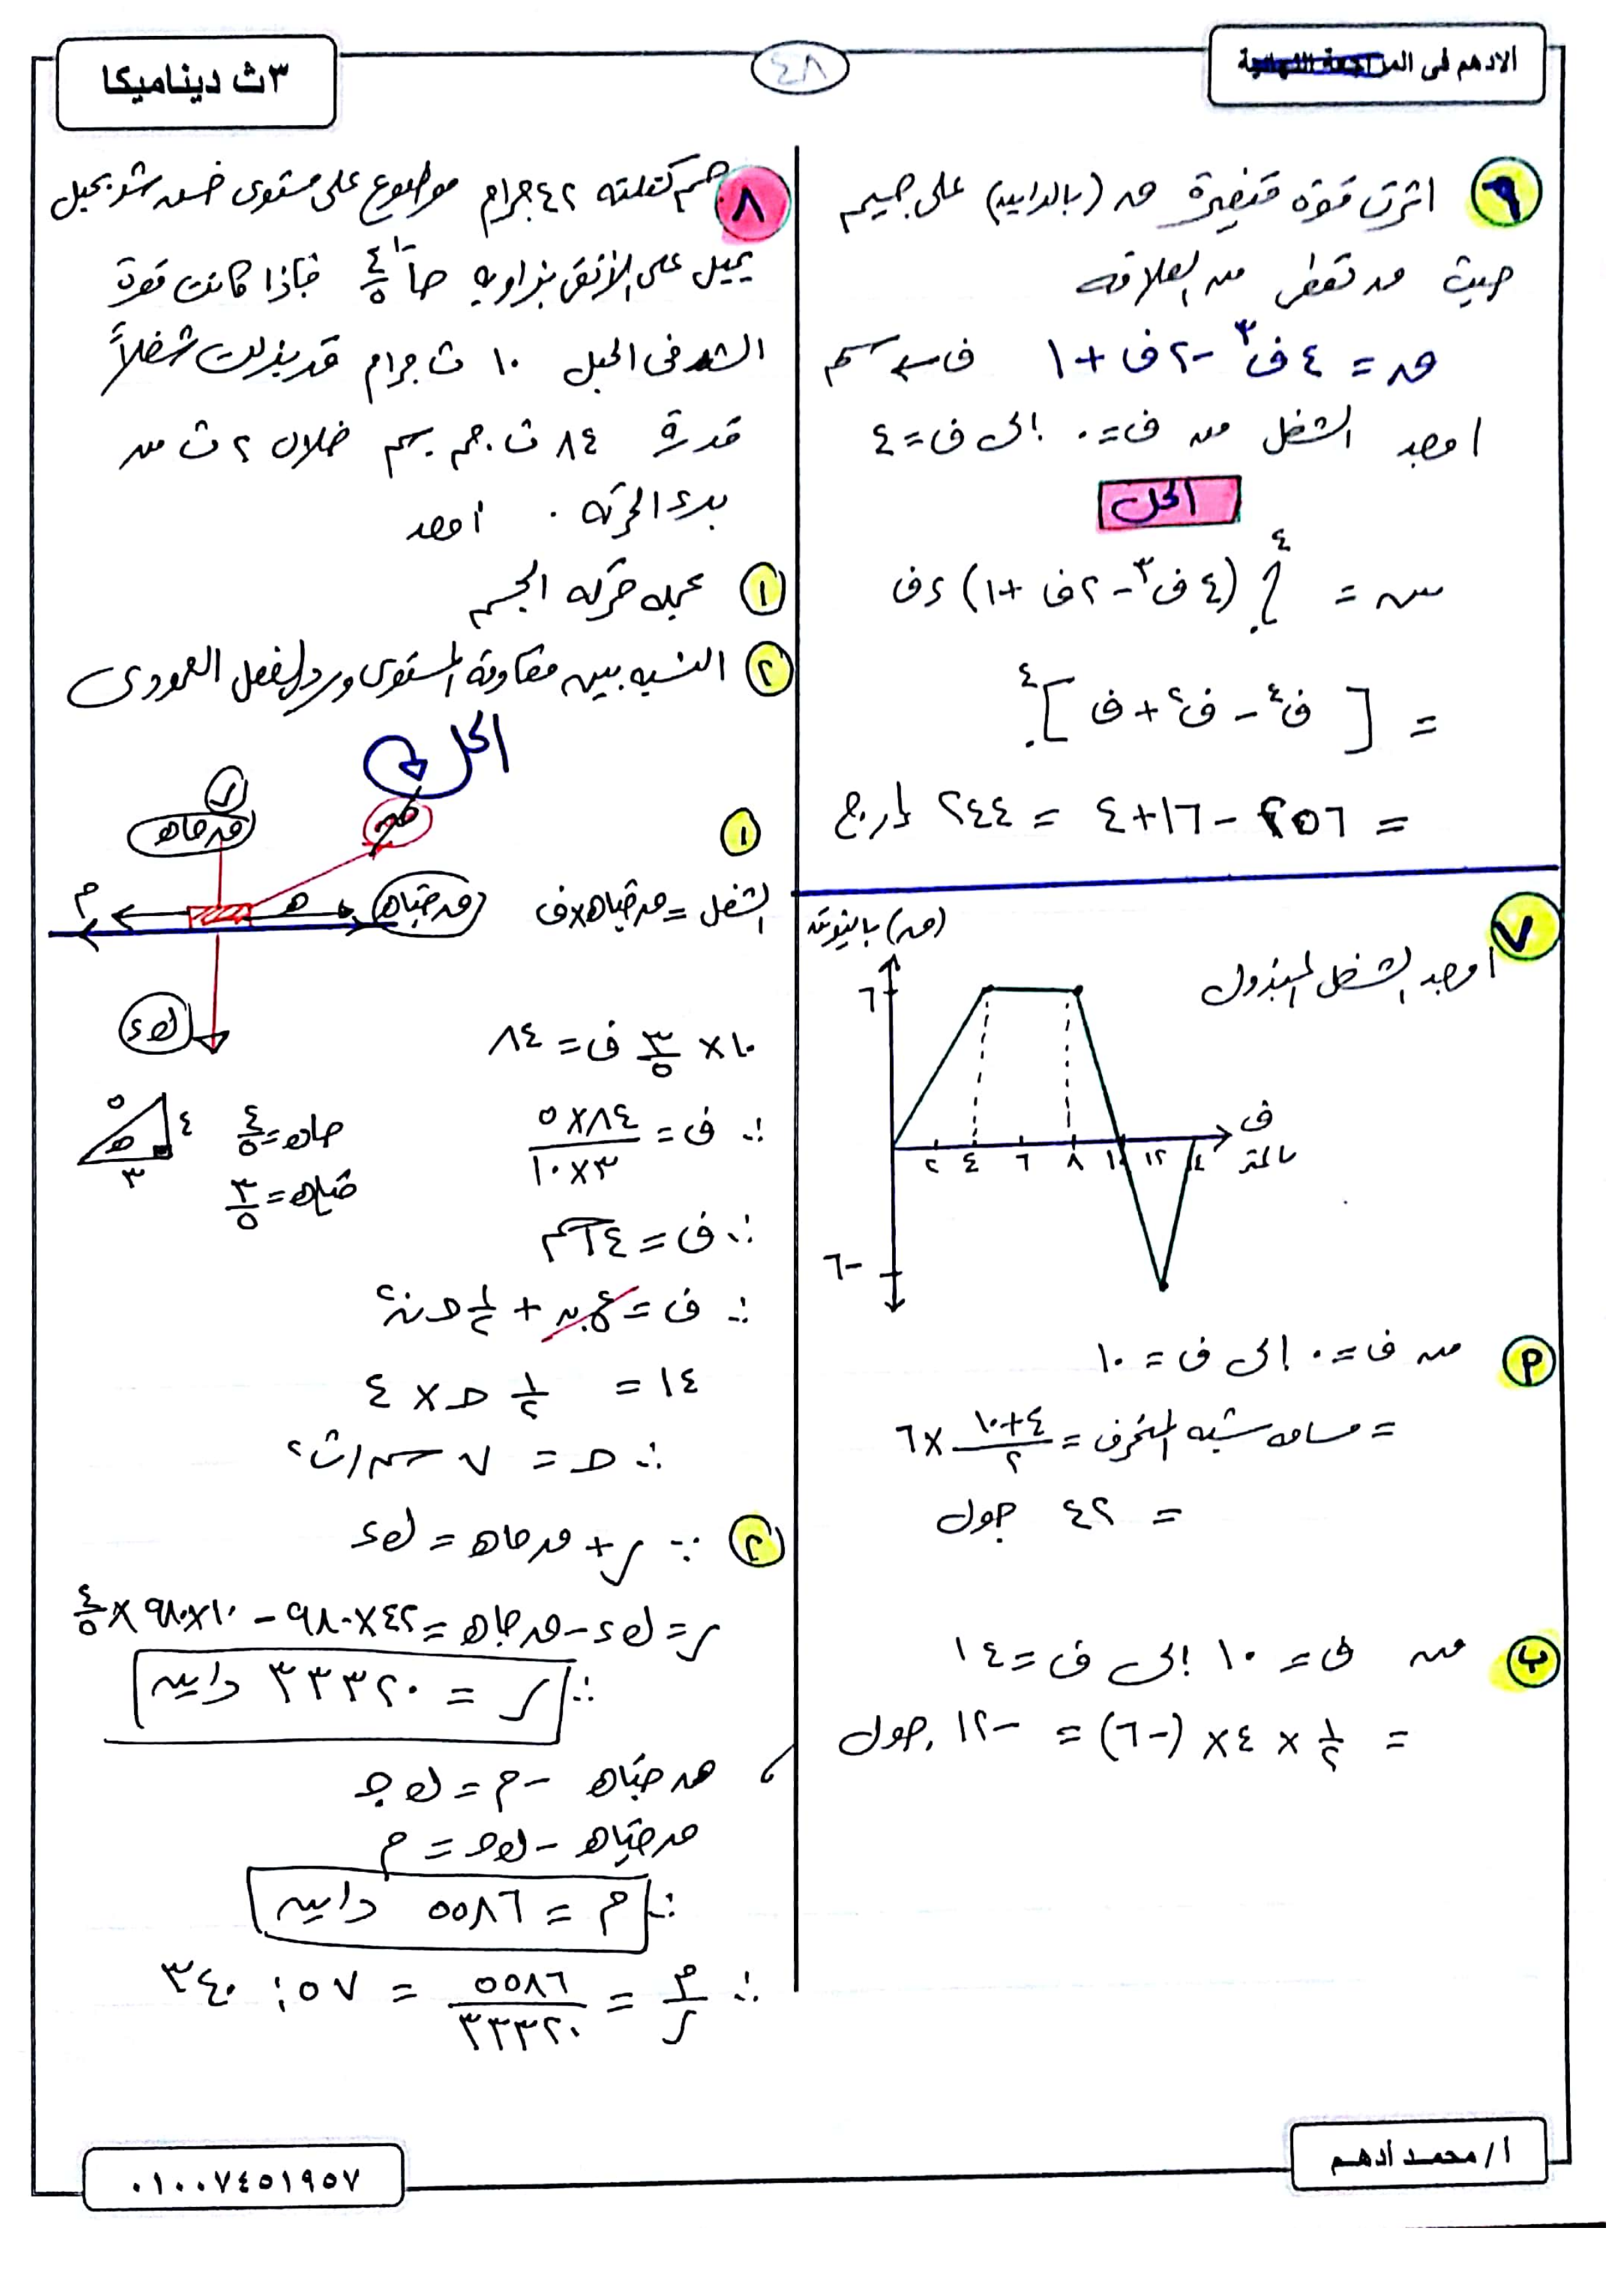 الادهم فى المراجعة النهائية
٤٨
٣ث ديناميكا
٦ اثرت قوة متغيرة ق (بالداين) على جسيم
حيث ق تعطى من العلاقه
ق = ٤ف٣ - ٢ف + ١ ف سم
اوجد الشغل من ف=٠ إلى ف=٤
الحل
ش = ∫٠٤ (٤ف٣ - ٢ف + ١) ءف
= [ف٤ - ف٢ + ف]٠٤
= ٢٥٦ - ١٦ + ٤ = ٢٤٤ إرج
٧ اوجد الشغل المبذول
(ق) بالنيوتن
٦
٢ ٤ ٦ ٨ ١٠ ١٢ ١٤
ف بالمتر
-٦
أ من ف=٠ إلى ف=١٠
= مساحه شبه المنحرف = (١٠+٤)/٢ × ٦
= ٤٢ جول
ب من ف=١٠ إلى ف=١٤
= ١/٢ × ٤ × (-٦) = -١٢ جول
٨ جسم كتلته ٤٢ جرام موضوع على مستوى خشن شد بحبل
يميل على الأفقى بزاويه جا-١ ٤/٥ فإذا كانت قوة
الشد فى الحبل ١٠ ث جرام قد بذلت شغلاً
قدرة ٨٤ ث.جم.سم خلال ٢ ث من
بدء الحركه . اوجد
١ عجله حركه الجسم
٢ النسبه بين مقاومة المستوى ورد الفعل العمودى
الحل
ر
ق جاه
م
ه
ق جتاه
ك ء
١
الشغل = ق جتاه × ف
١٠ × ٣/٥ ف = ٨٤
∴ ف = (٨٤×٥)/(٣×١٠)
٥ ٤ ه ٣
جاه = ٤/٥
جتاه = ٣/٥
∴ ف = ١٤ سم
∴ ف = ع٠ن + ١/٢ حـ ن٢
١٤ = ١/٢ حـ × ٤
∴ حـ = ٧ سم/ث٢
٢ ∵ ر + ق جاه = ك ء
ر = ك ء - ق جاه = ٤٢×٩٨٠ - ١٠×٩٨٠×٤/٥
∴ ر = ٣٣٣٢٠ داين
، ق جتاه - م = ك حـ
ق جتاه - ك حـ = م
∴ م = ٥٥٨٦ داين
∴ م/ر = ٥٥٨٦/٣٣٣٢٠ = ٥٧ : ٣٤٠
أ/ محمد أدهم
٠١٠٠٧٤٥١٩٥٧